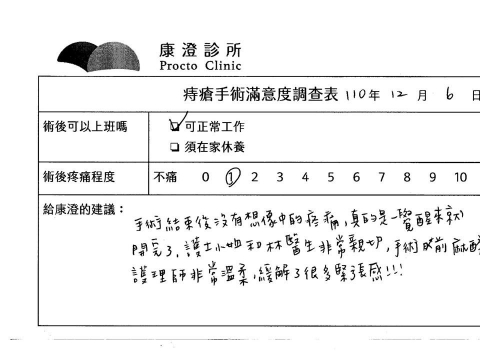 康澄診所
Procto Clinic
痔瘡手術滿意度調查表 110年 12 月 6 日
術後可以上班嗎 ☑ 可正常工作
□ 須在家休養
術後疼痛程度 不痛 0 1 2 3 4 5 6 7 8 9 10
給康澄的建議：
手術結束後沒有想像中的疼痛,真的是一覺醒來就
開完了,護士小姐和林醫生非常親切,手術前麻醉
護理師非常溫柔,緩解了很多緊張感!!!